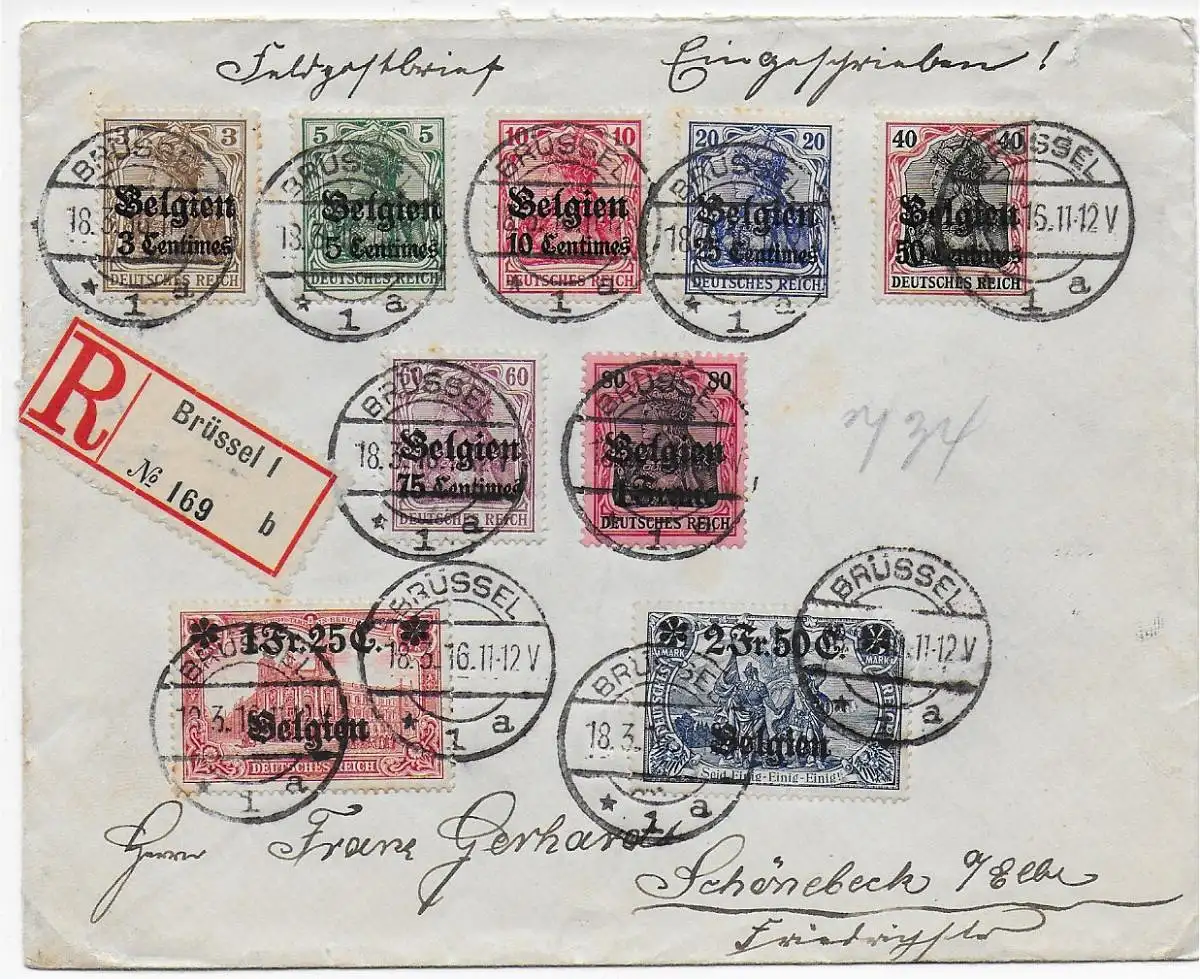 Feldpostbrief Eingeschrieben!
3 3 5 5 10 10 20 20 40 40
BRÜSSEL BRÜSSEL BRÜSSEL BRÜSSEL BRÜSSEL
Belgien Belgien Belgien Belgien Belgien
3 Centimes 5 Centimes 10 Centimes 25 Centimes 50 Centimes
18.3 18.3 18 16.11-12 V
DEUTSCHES REICH DEUTSCHES REICH DEUTSCHES REICH DEUTSCHES REICH DEUTSCHES REICH
* 1 a * 1 a * 1 a * 1 a 1 a
R Brüssel 1
№ 169 b
60 60 80 80
BRÜSSEL BRÜSSEL
Belgien Belgien
18.3
75 Centimes 1 Franc
DEUTSCHES REICH DEUTSCHES REICH
* 1 a 1
734
BRÜSSEL BRÜSSEL
1 Fr. 25 C. 2 Fr. 50 C.
MARK MARK
BRÜSSEL BRÜSSEL
18.3.16.11-12 V 11-12 V
DEUTSCHES REICH
Belgien Belgien
18.3.
* 1 a * a
DEUTSCHES REICH Seid Einig-Einig-Einig!
* 1 a * 1 a
Herrn Franz Gerhardt
Schönebeck a/Elbe
Friedrichstr